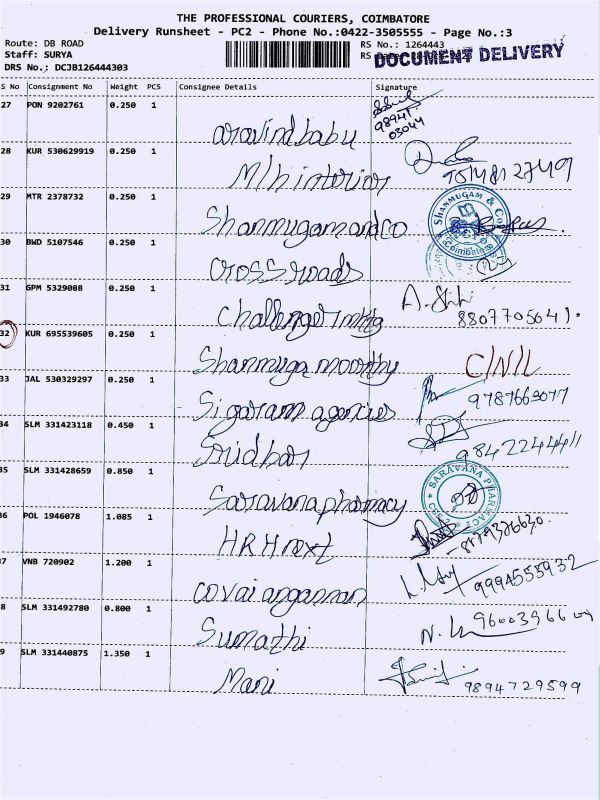 THE PROFESSIONAL COURIERS, COIMBATORE
Delivery Runsheet - PC2 - Phone No.:0422-3505555 - Page No.:3
Route: DB ROAD
RS No.: 1264443
Staff: SURYA
RS
DOCUMENT DELIVERY
DRS No.: DCJB126444303
S No Consignment No Weight PCS Consignee Details Signature
27 PON 9202761 0.250 1 aravind babu 98941 03044
28 KUR 530629919 0.250 1 M/h interior
29 MTR 2378732 0.250 1 Shanmugam and co SHANMUGAM & Co Coimbatore
30 BWD 5107546 0.250 1 Cross roads
31 GPM 5329088 0.250 1 Challenger 8807705641.
32 KUR 695539605 0.250 1 Shanmuga moorthy C/N/L
33 JAL 530329297 0.250 1 Sigaram agencies 9787669077
34 SLM 331423118 0.450 1 Sridhar 9842224411
35 SLM 331428659 0.850 1 Saravana pharmacy SARAVANA PHARMACY
36 POL 1946078 1.085 1 HRH next
37 VNB 720902 1.200 1 covai angannan 9994555932
8 SLM 331492780 0.800 1 Sumathi
9 SLM 331440875 1.350 1 Mani 9894729599